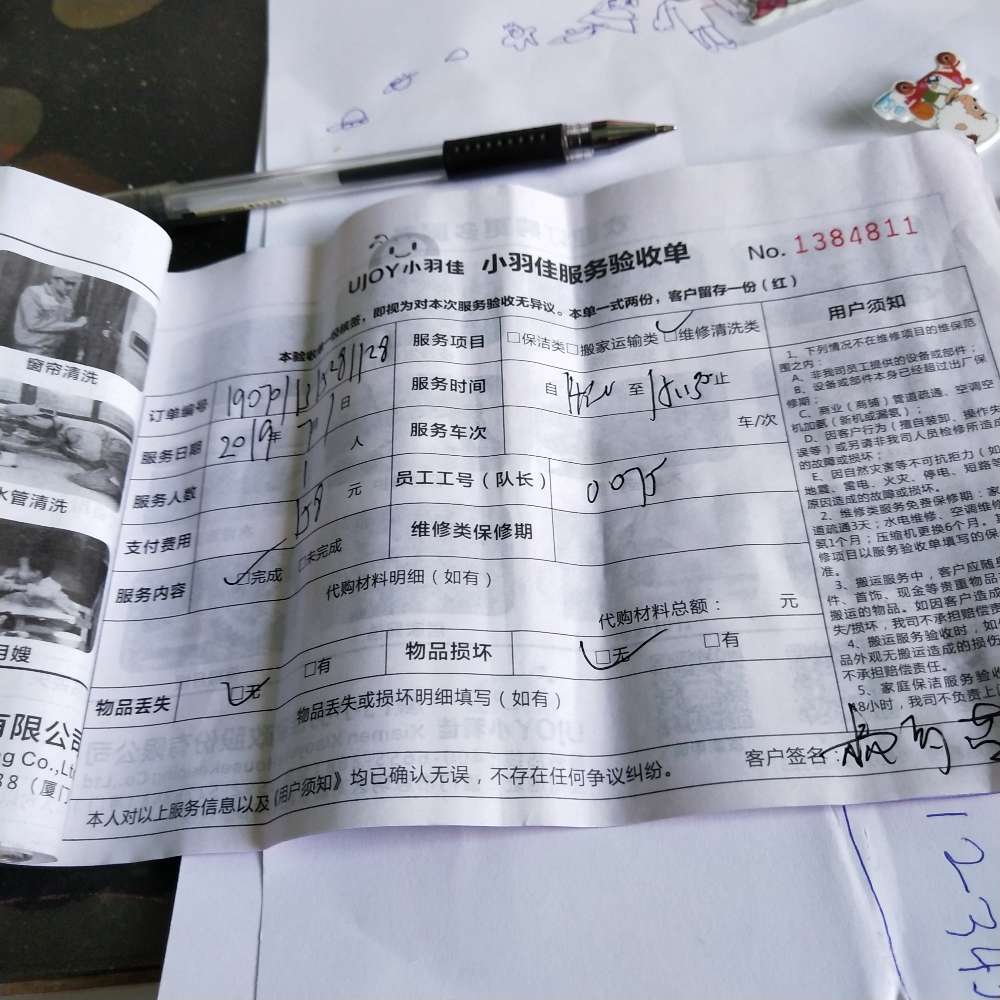 UJOY小羽佳 小羽佳服务验收单
No. 1384811
即视为对本次服务验收无异议。本单一式两份，客户留存一份（红）
订单编号
服务项目 □保洁类□搬家运输类□维修清洗类
服务日期 2019年 日
服务时间 自 至 止
服务人数 1 人
服务车次 车/次
支付费用 158 元
员工工号（队长） 0075
服务内容 □完成 □未完成
维修类保修期
代购材料明细（如有）
代购材料总额： 元
物品丢失 □无 □有
物品损坏 □无 □有
物品丢失或损坏明细填写（如有）
本人对以上服务信息以及《用户须知》均已确认无误，不存在任何争议纠纷。
客户签名：
用户须知
1、下列情况不在维修项目的维保范
围之内
A、非我司员工提供的设备或部件；
B、设备或部件本身已经超过出厂保
修期；
C、商业（商铺）管道疏通、空调空
机加氨（新机或漏氨）；
D、因客户行为（擅自装卸、操作失
误等）或另请非我司人员检修所造成
的故障或损坏；
E、因自然灾害等不可抗拒力（如
地震、雷电、火灾、停电、短路等
原因造成的故障或损坏。
2、维修类服务免费保修期：家
道疏通3天；水电维修、空调维修
氨1个月；压缩机更换6个月。
修项目以服务验收单填写的保
准。
3、搬运服务中，客户应随身
件、首饰、现金等贵重物品
搬运的物品。如因客户造成
失/损坏，我司不承担赔偿责
4、搬运服务验收时，如
品外观无搬运造成的损伤
不承担赔偿责任。
5、家庭保洁服务验收
48小时，我司不负责上
窗帘清洗
水管清洗
月嫂
有限公司
ng Co.,Lt
88（厦门
12345